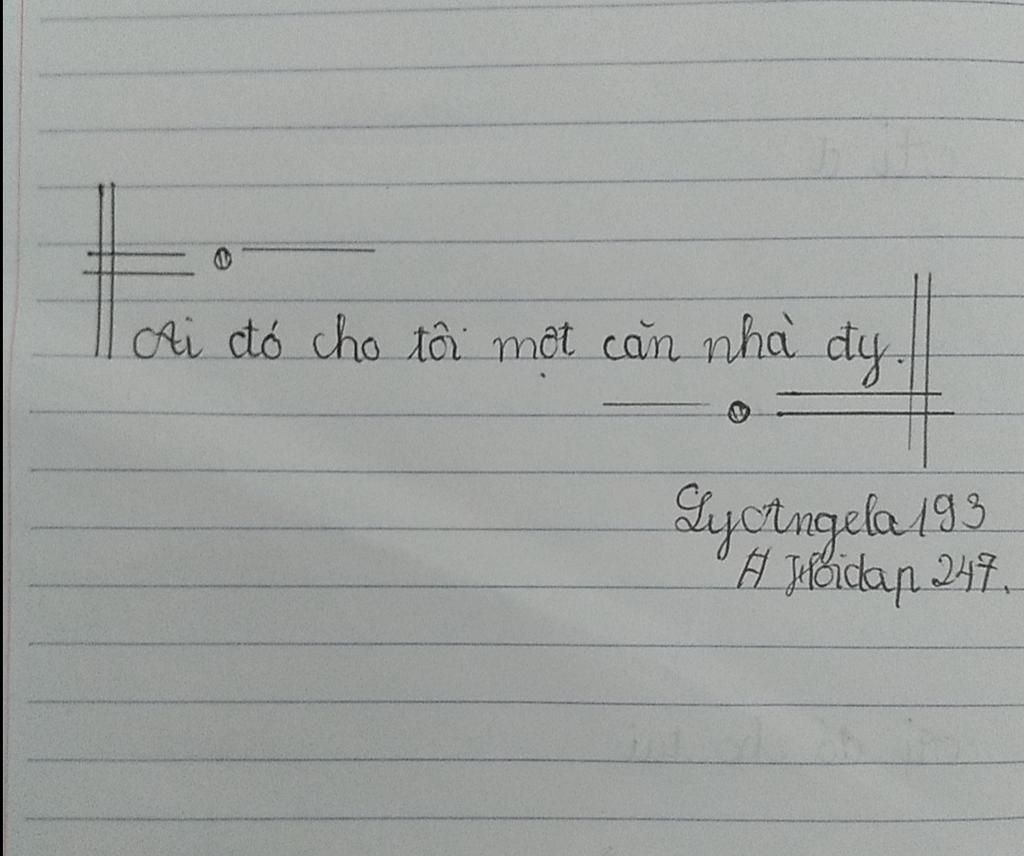 Ai đó cho tôi một căn nhà đy.
LyAngela193
# Hoidap 247.